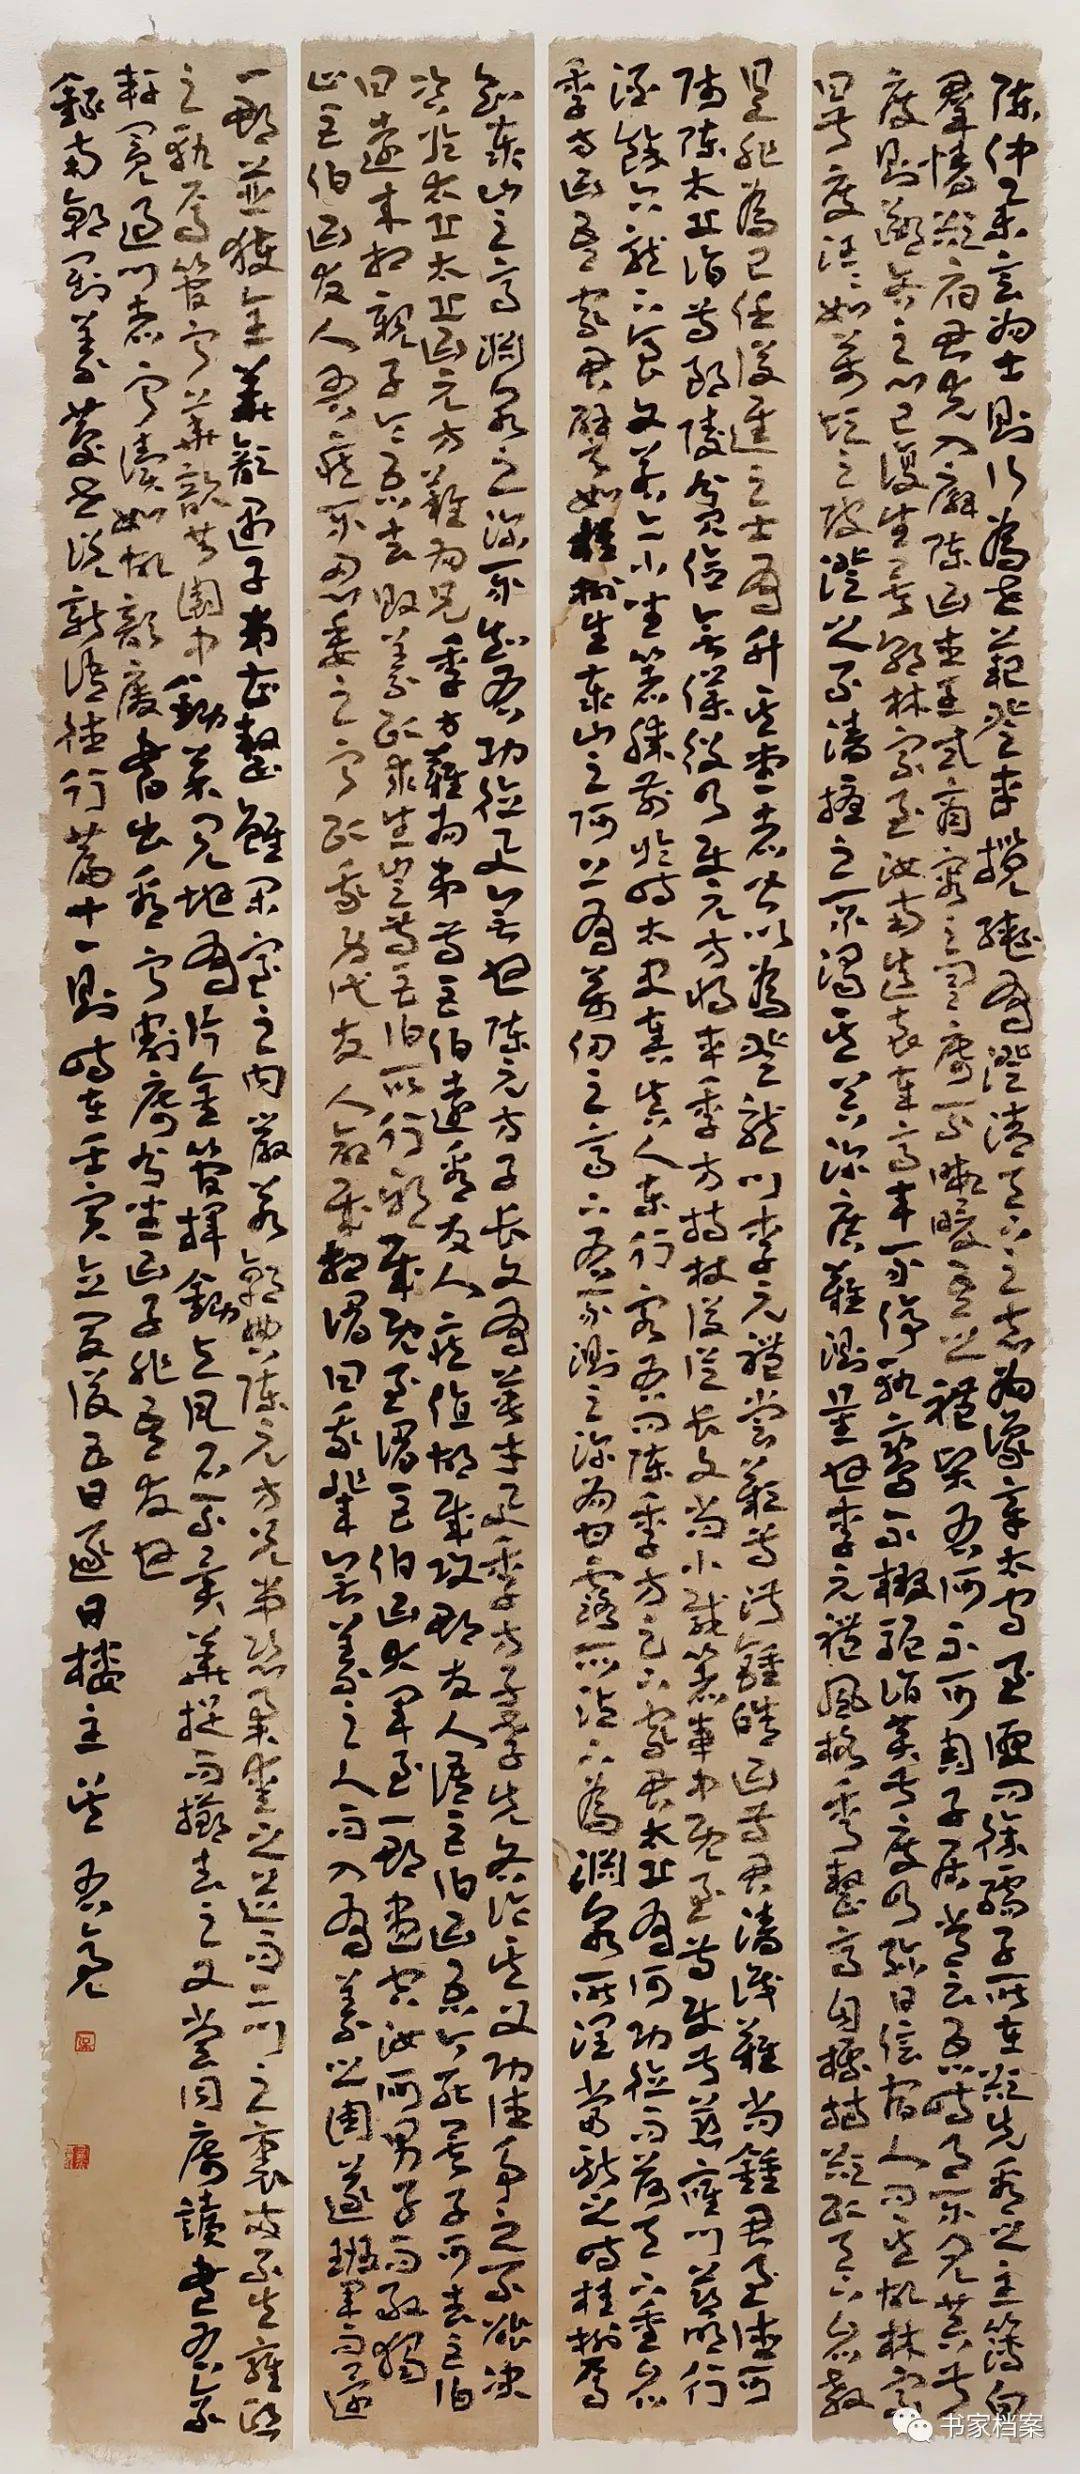 陈仲举言为士则行为世范登车揽辔有澄清天下之志为豫章太守至便问徐孺子所在欲先看之主簿白
群情欲府君先入廨陈曰武王式商容之闾席不暇暖吾之礼贤有何不可周子居常云吾时月不见黄叔
度则鄙吝之心已复生矣郭林宗至汝南造袁奉高车不停轨鸾不辍轭诣黄叔度乃弥日信宿人问其故林宗
曰叔度汪汪如万顷之陂澄之不清扰之不浊其器深广难测量也李元礼风格秀整高自标持欲以天下名教
是非为己任后进之士有升其堂者皆以为登龙门李元礼尝叹荀淑钟皓曰荀君清识难尚钟君至德可
师陈太丘诣荀朗陵贫俭无仆役乃使元方将车季方持杖后从长文尚小载著车中既至荀使叔慈应门慈明行
酒馀六龙下食文若亦小坐著膝前于时太史奏真人东行客有问陈季方足下家君太丘有何功德而荷天下重名
季方曰吾家君譬如桂树生泰山之阿上有万仞之高下有不测之深为甘露所沾下为渊泉所润当斯之时桂树焉
知泰山之高渊泉之深不知有功德与无也陈元方子长文有英才与季方子孝先各论其父功德争之不能决
咨于太丘太丘曰元方难为兄季方难为弟荀巨伯远看友人疾值胡贼攻郡友人语巨伯曰吾今死矣子可去巨伯
曰远来相视子令吾去败义以求生岂荀巨伯所行邪贼既至谓巨伯曰大军至一郡尽空汝何男子而敢独
止巨伯曰友人有疾不忍委之宁以我身代友人命贼相谓曰我辈无义之人而入有义之国遂班军而还
一郡并获全华歆遇子弟甚整虽闲室之内严若朝典陈元方兄弟恣柔爱之道而二门之里两不失雍熙
之轨焉管宁华歆共园中锄菜见地有片金管挥锄与瓦石不异华捉而掷去之又尝同席读书有乘
轩冕过门者宁读如故歆废书出看宁割席分坐曰子非吾友也
录南朝刘义庆世说新语德行篇十一则时在壬寅立夏后五日逐日楼主
书家档案